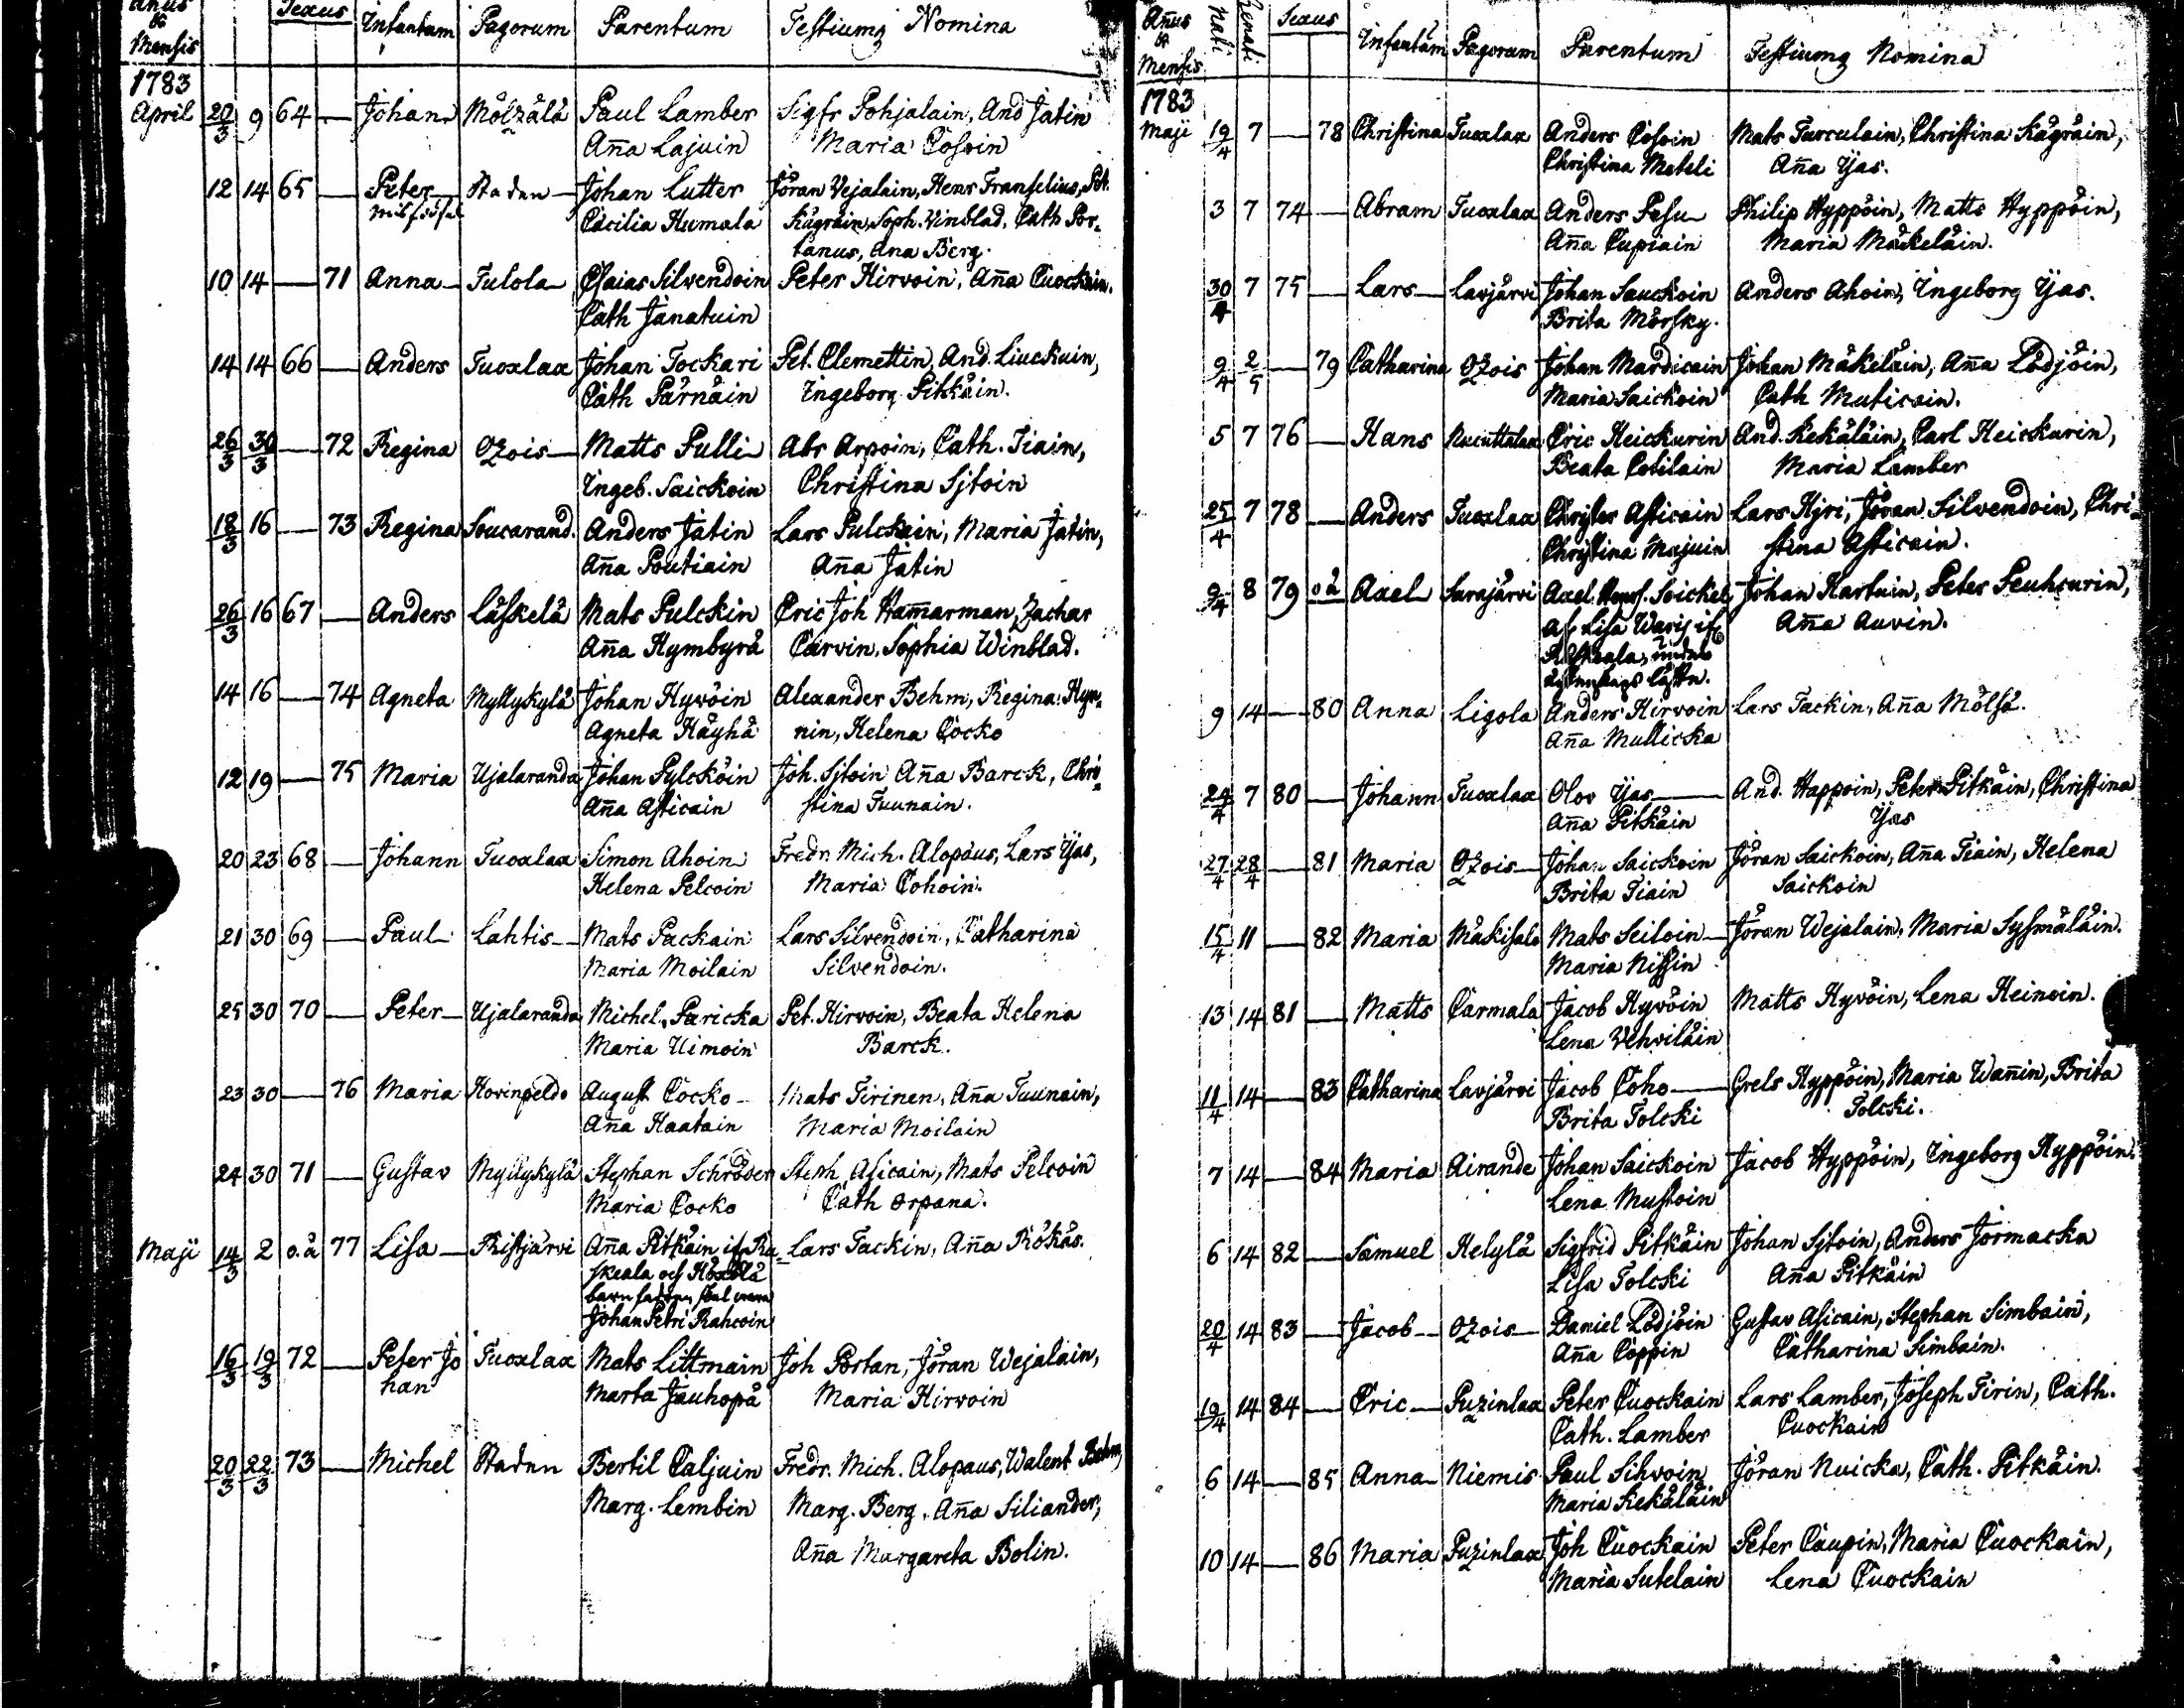 Anus & Mensis Sexus Infantum Pagorum Parentum Testiumq Nomina
1783
April 20/3 9 64 — Johan Mölzälä Paul Lamber Sigfr Pohjalain, And Jatin
Aña Lajuin Maria Cosoin
12 14 65 — Peter Staden Johan Lutter Jöran Vejalain, Henr Franselius, Pet.
Cäcilia Humala Kägräin, Soph. Winblad, Cath Por-
tanus, Ana Berg.
10 14 — 71 Anna Tulola Esaias Silvendoin Peter Hirvoin, Aña Cuockain.
Cath Janatuin
14 14 66 — Anders Tuoxlax Johan Tockari Pet. Clemettin, And. Liuckuin,
Cath Pärnäin Ingeborg Pitkäin.
26/3 30/3 — 72 Regina Ozois Matts Pulli Abr Arpoin, Cath. Tiain,
Ingeb. Saickoin Christina Sjtoin
18/3 16 — 73 Regina Soucarand. Anders Jatin Lars Pulckin, Maria Jatin,
Aña Poutiain Aña Jatin
26/3 16 67 — Anders Läskelä Mats Pulckin Eric Joh Hamarman, Zachar
Aña Hymbyrä Carvin, Sophia Winblad.
14 16 — 74 Agneta Myllykylä Johan Hyvöin Alexander Behm, Regina Hyv-
Agneta Häyhä nin, Helena Cocko
12 19 — 75 Maria Ujalaranda Johan Pylcköin Joh. Sjtoin Aña Barck, Chri-
Aña Asticain stina Tuunain.
20 23 68 — Johann Tuoxlax Simon Ahoin Fredr. Mich. Alopäus, Lars Yjas,
Helena Pelcoin Maria Cohoin.
21 30 69 — Paul Lahtis Mats Packain Lars Silvendoin, Catharina
Maria Moilain Silvendoin.
25 30 70 — Peter Ujalaranda Michel Paricka Pet. Hirvoin, Beata Helena
Maria Uimoin Barck.
23 30 — 76 Maria Hovinpeldo August Cocko Mats Tirinen, Aña Tuunain,
Aña Haatain Maria Moilain
24 30 71 — Gustav Myllykylä Stephan Schröder Steph Asicain, Mats Pelcoin
Maria Cocko Cath Orpana.
Maji 14/3 2 o.ä 77 Lisa Ristjärvi Aña Pitkäin if. Ru- Lars Tackin, Aña Rökäs.
skeala och
barnfadren skal vara
Johan Petri Rahcoin
16/3 19/3 72 — Peter Jo Tuoxlax Mats Littmain Joh Portan, Jöran Wejalain,
han Marta Jauhopä Maria Hirvoin
20/3 22/3 73 — Michel Staden Bertil Caljuin Fredr. Mich. Alopaus, Walent Behm,
Marg. Lembin Marg. Berg, Aña Siliander,
Aña Margareta Bolin.
Añus & Mensis Nati Renati Sexus Infantum Pagorum Parentum Testiumq Nomina
1783
Maji 19/4 7 — 78 Christina Tuoxlax Anders Cosoin Mats Turculain, Christina Kägräin,
Christina Meteli Aña Yjas.
3 7 74 — Abram Tuoxlax Anders Pasu Philip Hyppöin, Matts Hyppöin,
Aña Cupiain Maria Mäkeläin.
30/4 7 75 — Lars Lavjärvi Johan Sauckoin Anders Ahoin, Ingeborg Yjas.
Brita Mörsky.
9/4 2/5 — 79 Catharina Ozois Johan Mardicain Johan Mäkeläin, Aña Lödjöin,
Maria Saickoin Cath Muticain.
5 7 76 — Hans Eric Heickurin And. Kekäläin, Carl Heickurin,
Beata Cotilain Maria Lamber
25/4 7 78 — Anders Tuoxlax Christer Asticain Lars Hjri, Jöran Silvendoin, Chri-
Christina Majuin stina Asticain.
9/4 8 79 oä Axel Sarajärvi Axel Henrs. Soickel Johan Kartuin, Peter Peuhcurin,
af Lisa Aña Auvin.
9 14 — 80 Anna Ligola Anders Hirvoin Lars Tackin, Aña Mölsä.
Aña Mullicka
24/4 7 80 — Johann Tuoxlax Olov Yjas And. Happoin, Peter Pitkäin, Christina
Aña Pitkäin Yjas
27/4 28/4 — 81 Maria Ozois Johan Saickoin Jöran Saickoin, Aña Tiain, Helena
Brita Tiain Saickoin
15/4 11 — 82 Maria Mäkisalo Mats Seiloin Jöran Wejalain, Maria Sysmäläin.
Maria Nissin
13 14 81 — Matts Carmala Jacob Hyvöin Matts Hyvöin, Lena Heinoin.
Lena Vehviläin
11/4 14 — 83 Catharina Lavjärvi Jacob Coho Grels Hyppöin, Maria Wañin, Brita
Brita Tolcki Tolcki.
7 14 — 84 Maria Airanda Johan Saickoin Jacob Hyppöin, Ingeborg Hyppöin.
Lena Mustoin
6 14 82 — Samuel Helylä Sigfrid Pitkäin Johan Sjtoin, Anders Jormacka
Lisa Tolcki Aña Pitkäin
20/4 14 83 — Jacob Ozois Daniel Lödjöin Gustav Asicain, Stephan Simbain,
Aña Coppin Catharina Simbain.
19/4 14 84 — Eric Puzinlax Peter Cuockain Lars Lamber, Joseph Tirin, Cath.
Cath. Lamber Cuockain
6 14 — 85 Anna Niemis Paul Sihvoin Jöran Nuicka, Cath. Pitkäin.
Maria Kekäläin
10 14 — 86 Maria Puzinlax Joh Cuockain Peter Caupin, Maria Cuockain,
Maria Sutelain Lena Cuockain